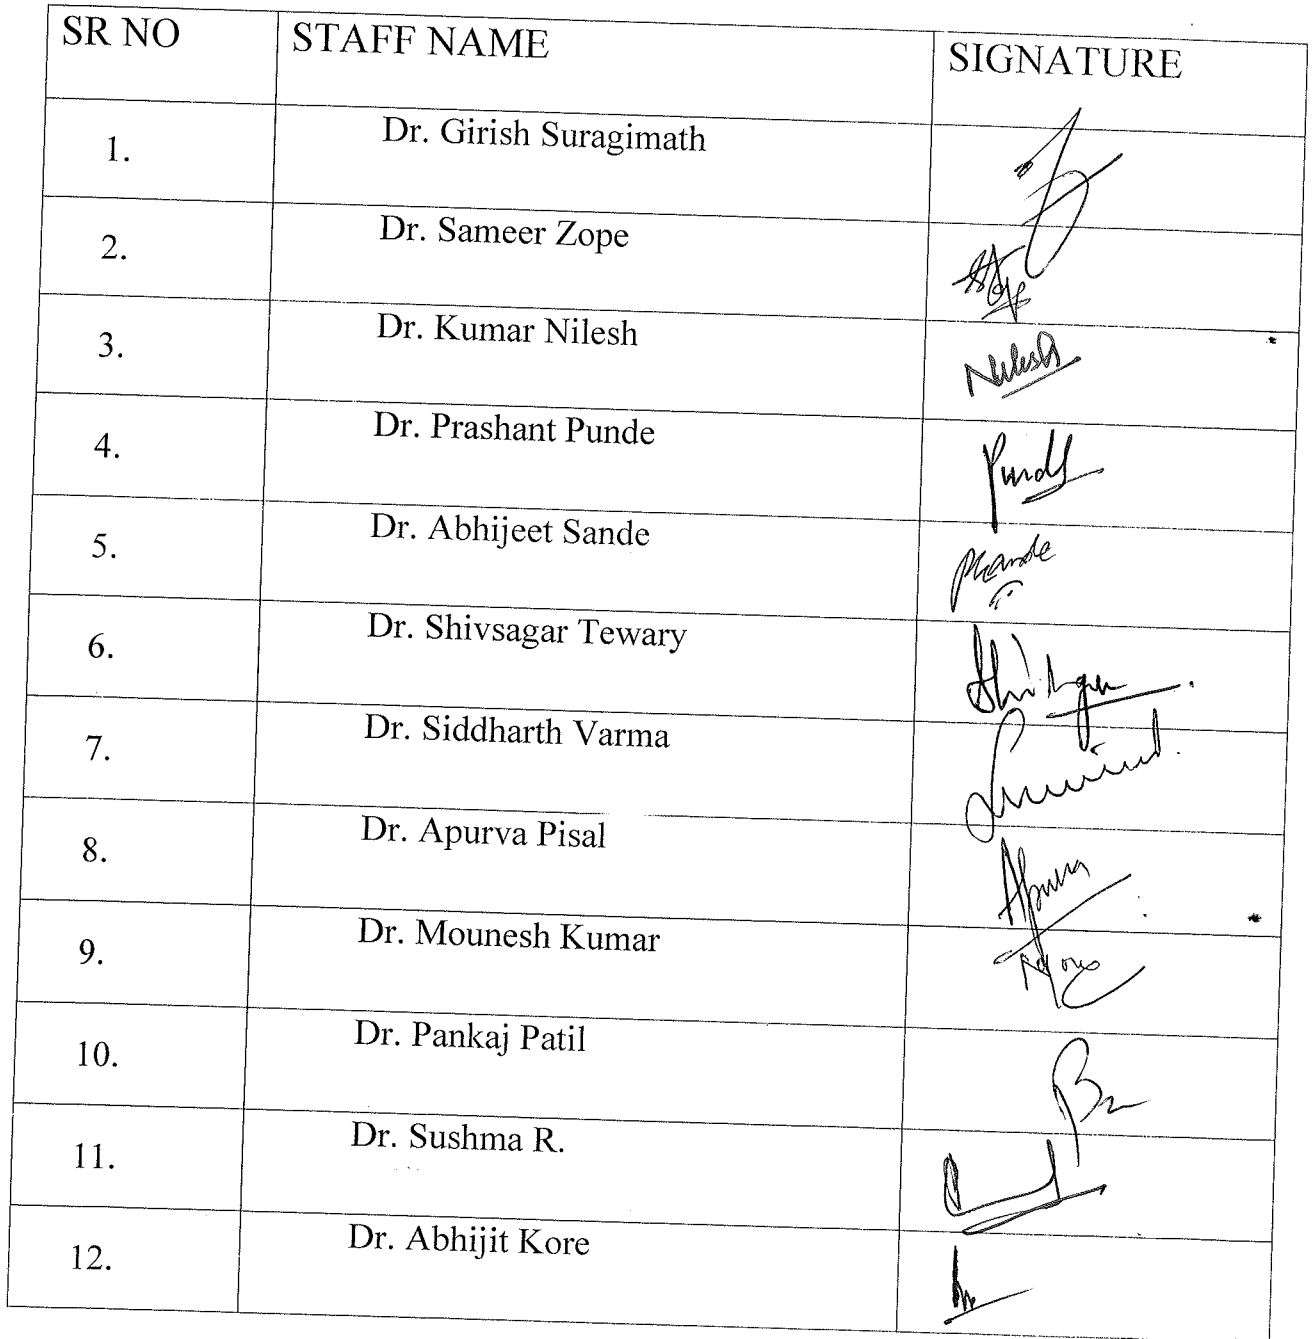 SR NO STAFF NAME SIGNATURE
1. Dr. Girish Suragimath
2. Dr. Sameer Zope
3. Dr. Kumar Nilesh Nilesh
4. Dr. Prashant Punde Punde
5. Dr. Abhijeet Sande
6. Dr. Shivsagar Tewary
7. Dr. Siddharth Varma
8. Dr. Apurva Pisal Apurva
9. Dr. Mounesh Kumar
10. Dr. Pankaj Patil
11. Dr. Sushma R.
12. Dr. Abhijit Kore